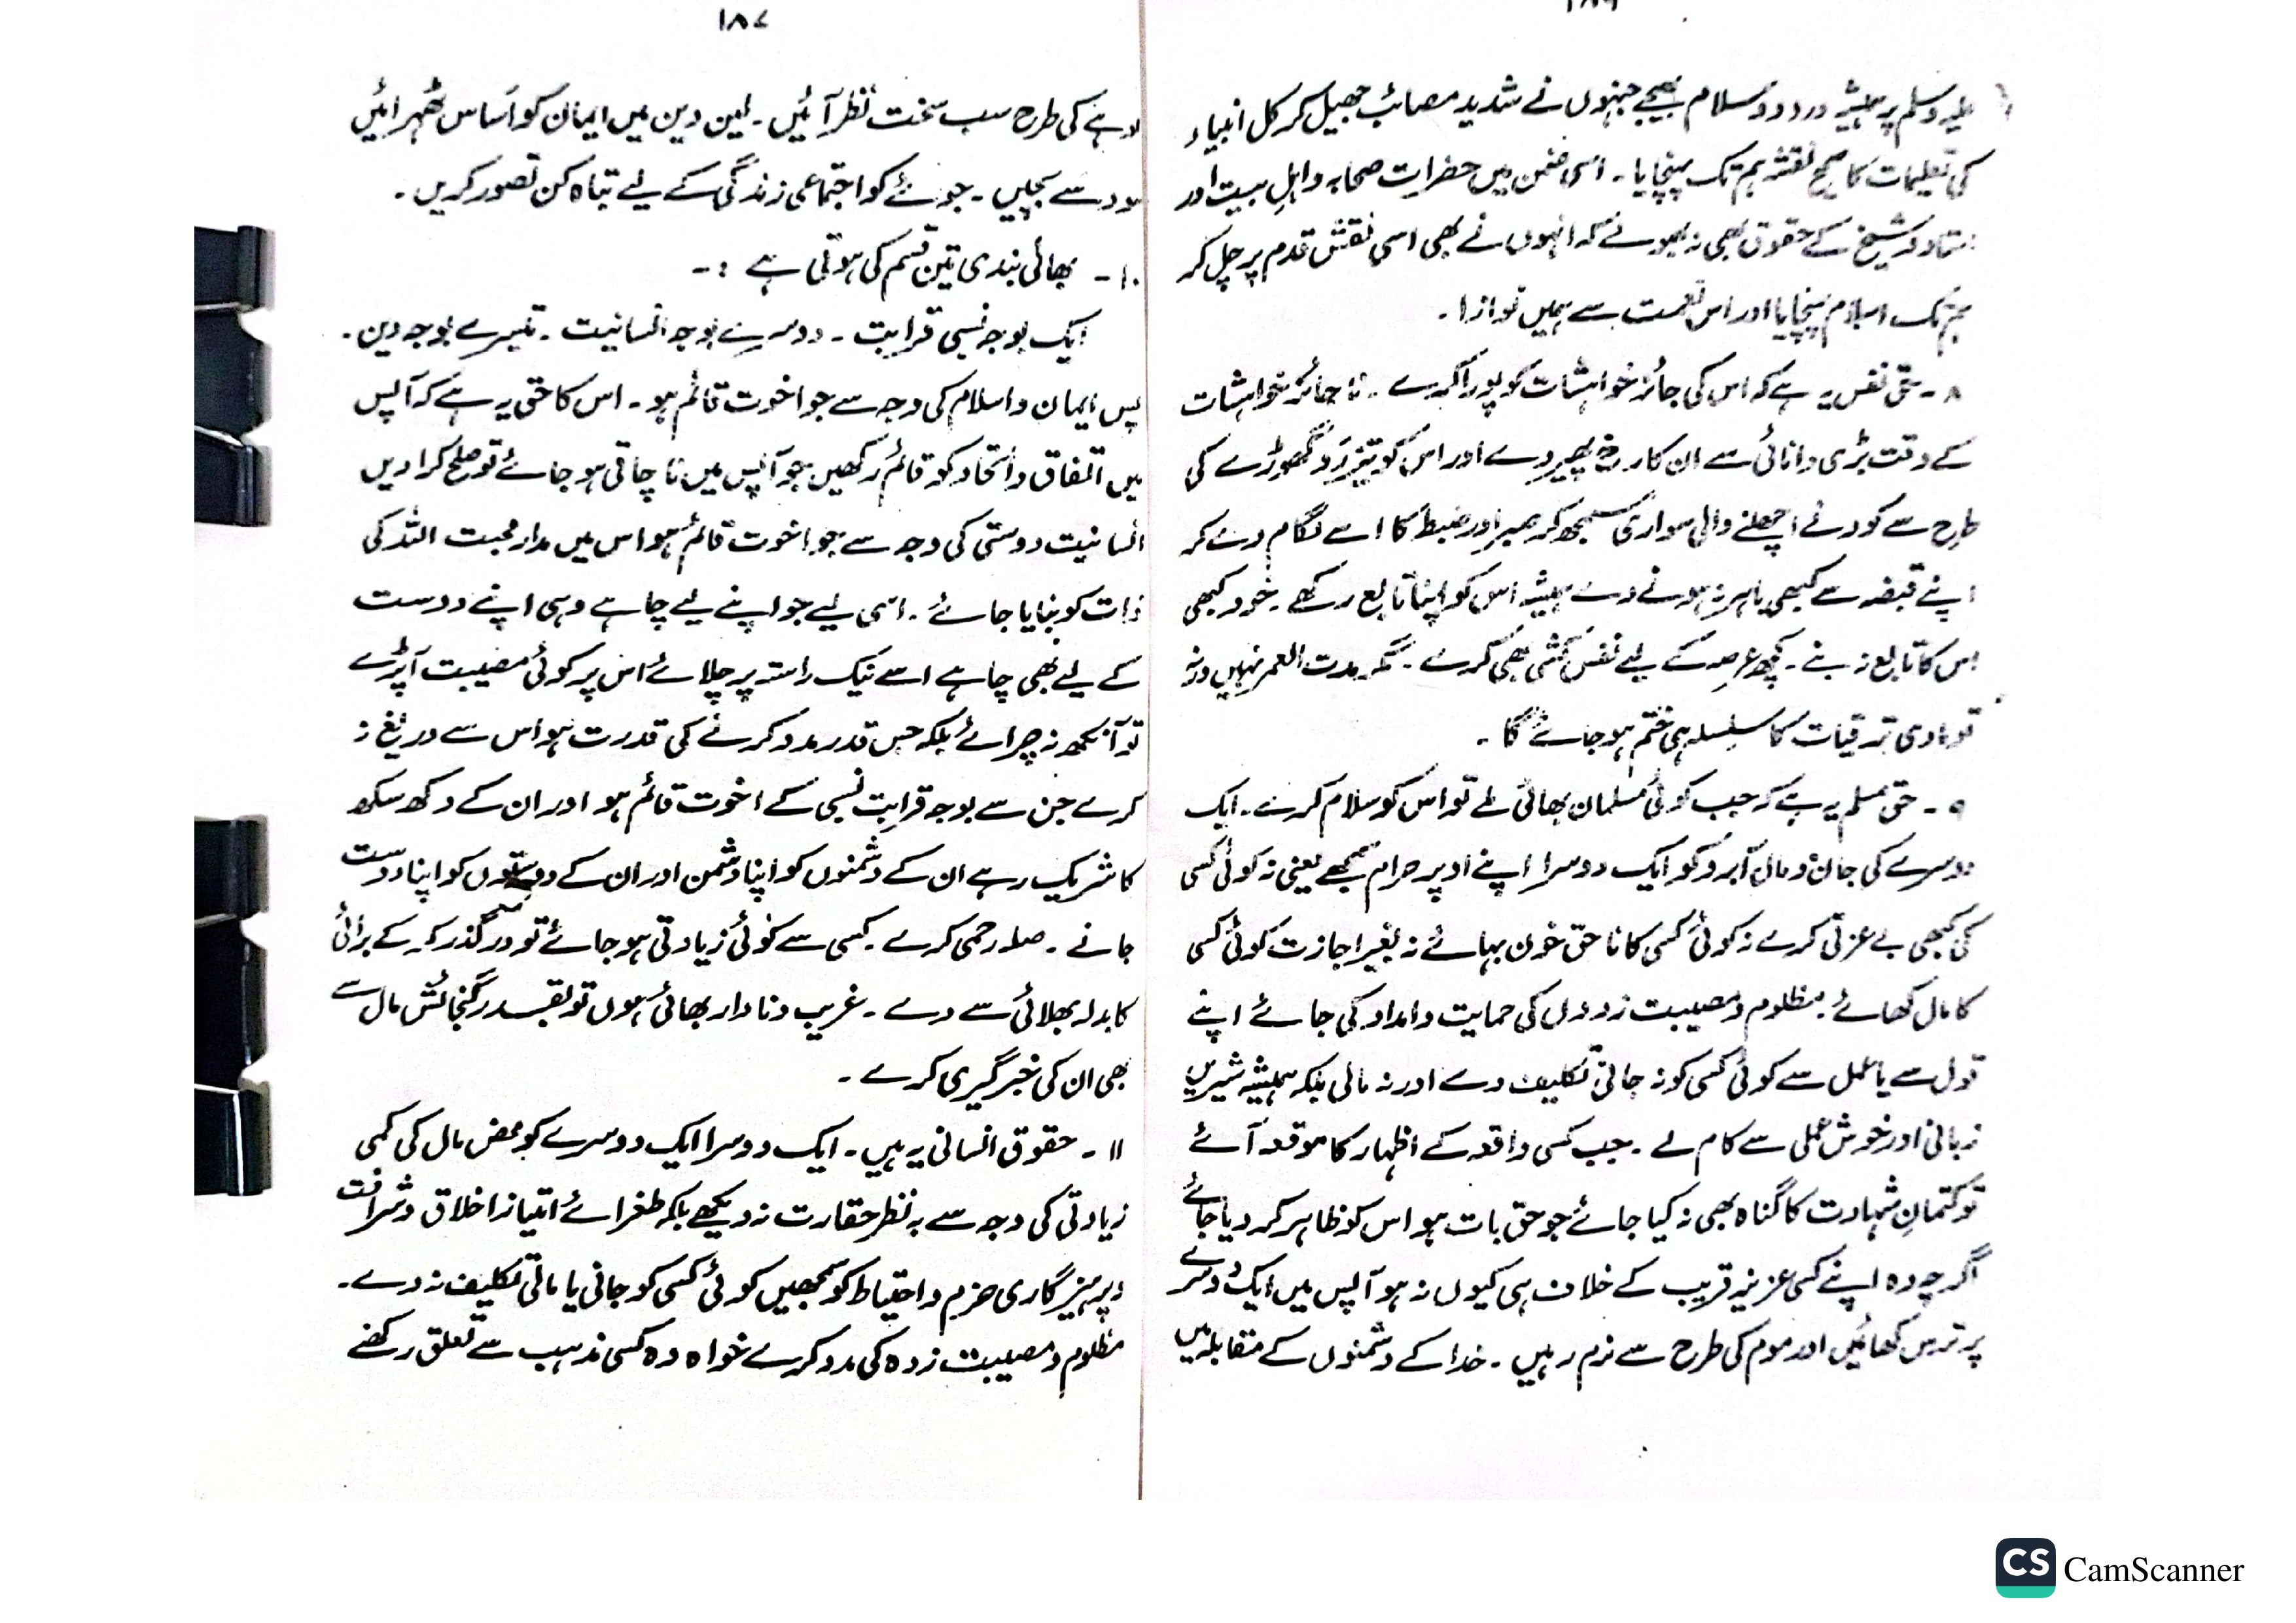 ۱۸۶
علیہ وسلم پر ہمیشہ درود و سلام بھیجے جنہوں نے شدید مصائب جھیل کر کل انبیاء
کی تعلیمات کا صحیح نقشہ ہم تک پہنچایا ۔ اسی ضمن میں حضرات صحابہ و اہل بیت اور
استاد و شیخ کے حقوق بھی نہ بھولے کہ انہوں نے بھی اسی نقش قدم پر چل کر
ہم تک اسلام پہنچایا اور اس نعمت سے ہمیں نوازا ۔
۸ ۔ حق نفس یہ ہے کہ اس کی جائز خواہشات کو پورا کرے ۔ ناجائز خواہشات
کے وقت بڑی دانائی سے ان کا رخ پھیر دے اور اس کو تیز رَو گھوڑے کی
طرح سے کودنے اچھلنے والی سواری سمجھ کر صبر اور ضبط کا اسے لگام دے کر
اپنے قبضہ سے کبھی باہر نہ ہونے دے ہمیشہ اس کو اپنا تابع رکھے ۔ خود کبھی
اس کا تابع نہ بنے ۔ کچھ عرصہ کے لیے نفس کشی بھی کرے ۔ مگر مدت العمر نہیں ورنہ
تو مادی ترقیات کا سلسلہ ہی ختم ہو جائے گا ۔
۹ ۔ حق مسلم یہ ہے کہ جب کوئی مسلمان بھائی ملے تو اس کو سلام کرے ۔ ایک
دوسرے کی جان و مال آبرو کو ایک دوسرا اپنے اوپر حرام سمجھے یعنی نہ کوئی کسی
کی کبھی بے عزتی کرے نہ کوئی کسی کا ناحق خون بہائے نہ بغیر اجازت کوئی کسی
کا مال کھائے ۔ مظلوم و مصیبت زدوں کی حمایت و امداد کی جائے اپنے
قول سے یا عمل سے کوئی کسی کو نہ جانی تکلیف دے اور نہ مالی بلکہ ہمیشہ شیریں
زبانی اور خوش عملی سے کام لے ۔ جب کسی واقعہ کے اظہار کا موقعہ آئے
تو کتمانِ شہادت کا گناہ بھی نہ کیا جائے جو حق بات ہو اس کو ظاہر کر دیا جائے
اگرچہ وہ اپنے کسی عزیز قریب کے خلاف ہی کیوں نہ ہو آپس میں ایک دوسرے
پر ترس کھائیں اور موم کی طرح سے نرم رہیں ۔ خدا کے دشمنوں کے مقابلہ میں
۱۸۷
لوہے کی طرح سب سخت نظر آئیں ۔ لین دین میں ایمان کو اساس ٹھہرائیں
سود سے بچیں ۔ جوئے کو اجتماعی زندگی کے لیے تباہ کن تصور کریں ۔
۱۰ ۔ بھائی بندی تین قسم کی ہوتی ہے : ۔
ایک بوجہ نسبی قرابت ۔ دوسرے بوجہ انسانیت ۔ تیسرے بوجہ دین ۔
پس ایمان و اسلام کی وجہ سے جو اخوت قائم ہو ۔ اس کا حق یہ ہے کہ آپس
میں اتفاق و اتحاد کو قائم رکھیں جو آپس میں ناچاقی ہو جائے تو صلح کرا دیں
انسانیت دوستی کی وجہ سے جو اخوت قائم ہو اس میں مدار محبت اللہ کی
ذات کو بنایا جائے ۔ اسی لیے جو اپنے لیے چاہے وہی اپنے دوست
کے لیے بھی چاہے اسے نیک راستہ پر چلائے اس پر کوئی مصیبت آپڑے
تو آنکھ نہ چرائے بلکہ جس قدر مدد کرنے کی قدرت ہو اس سے دریغ نہ
کرے جن سے بوجہ قرابت نسبی کے اخوت قائم ہو اور ان کے دکھ سکھ
کا شریک رہے ان کے دشمنوں کو اپنا دشمن اور ان کے دوستوں کو اپنا دوست
جانے ۔ صلہ رحمی کرے ۔ کسی سے کوئی زیادتی ہو جائے تو درگذر کر کے برائی
کا بدلہ بھلائی سے دے ۔ غریب و نادار بھائی ہوں تو بقدر گنجائش مال سے
بھی ان کی خبر گیری کرے ۔
۱۱ ۔ حقوق انسانی یہ ہیں ۔ ایک دوسرا ایک دوسرے کو محض مال کی کمی
زیادتی کی وجہ سے بہ نظر حقارت نہ دیکھے بلکہ طغرائے امتیاز اخلاق و شرافت
و پرہیزگاری حزم و احتیاط کو سمجھیں کوئی کسی کو جانی یا مالی تکلیف نہ دے ۔
مظلوم و مصیبت زدہ کی مدد کرے خواہ وہ کسی مذہب سے تعلق رکھے
CS CamScanner